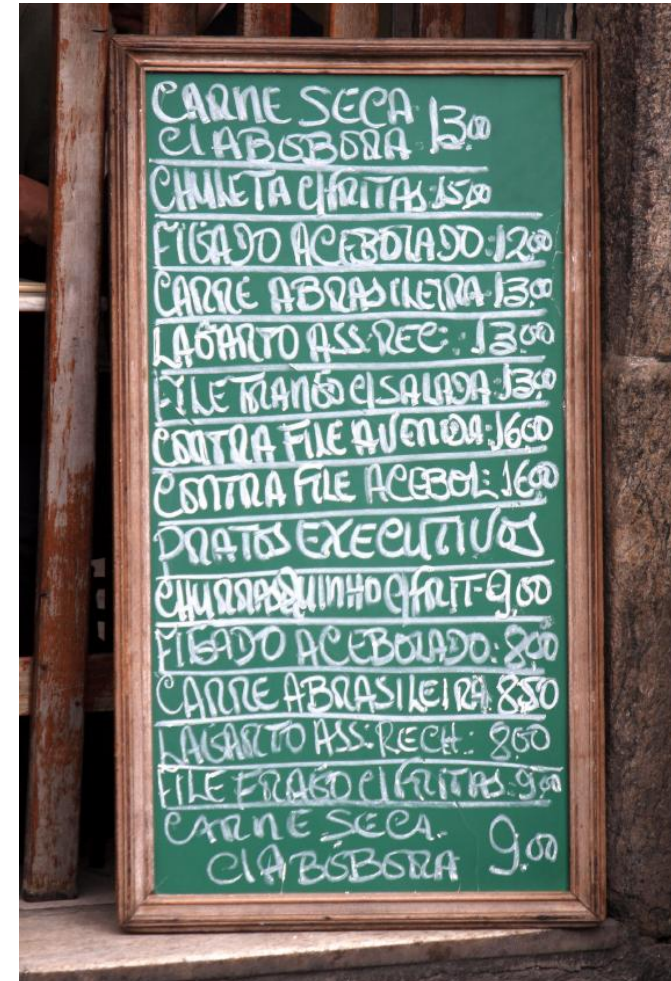 CARNE SECA 13,00
C/ ABOBORA
CHULETA C/FRITAS 15,00
FIGADO ACEBOLADO: 12,00
CARRE ABRASILEIRA 13,00
LAGARTO ASS. REC: 13,00
FILE FRANGO C/SALADA: 13,00
CONTRA FILE AVENIDA: 16,00
CONTRA FILE ACEBOL: 16,00
PRATOS EXECUTIVOS
CHURRASQUINHO C/FRIT- 9,00
FIGADO ACEBOLADO: 8,00
CARRE ABRASILEIRA 8,50
LAGARTO ASS. RECH: 8,00
FILE FRAGO C/ FRITAS: 9,00
CARNE SECA.
C/ABOBORA 9,00